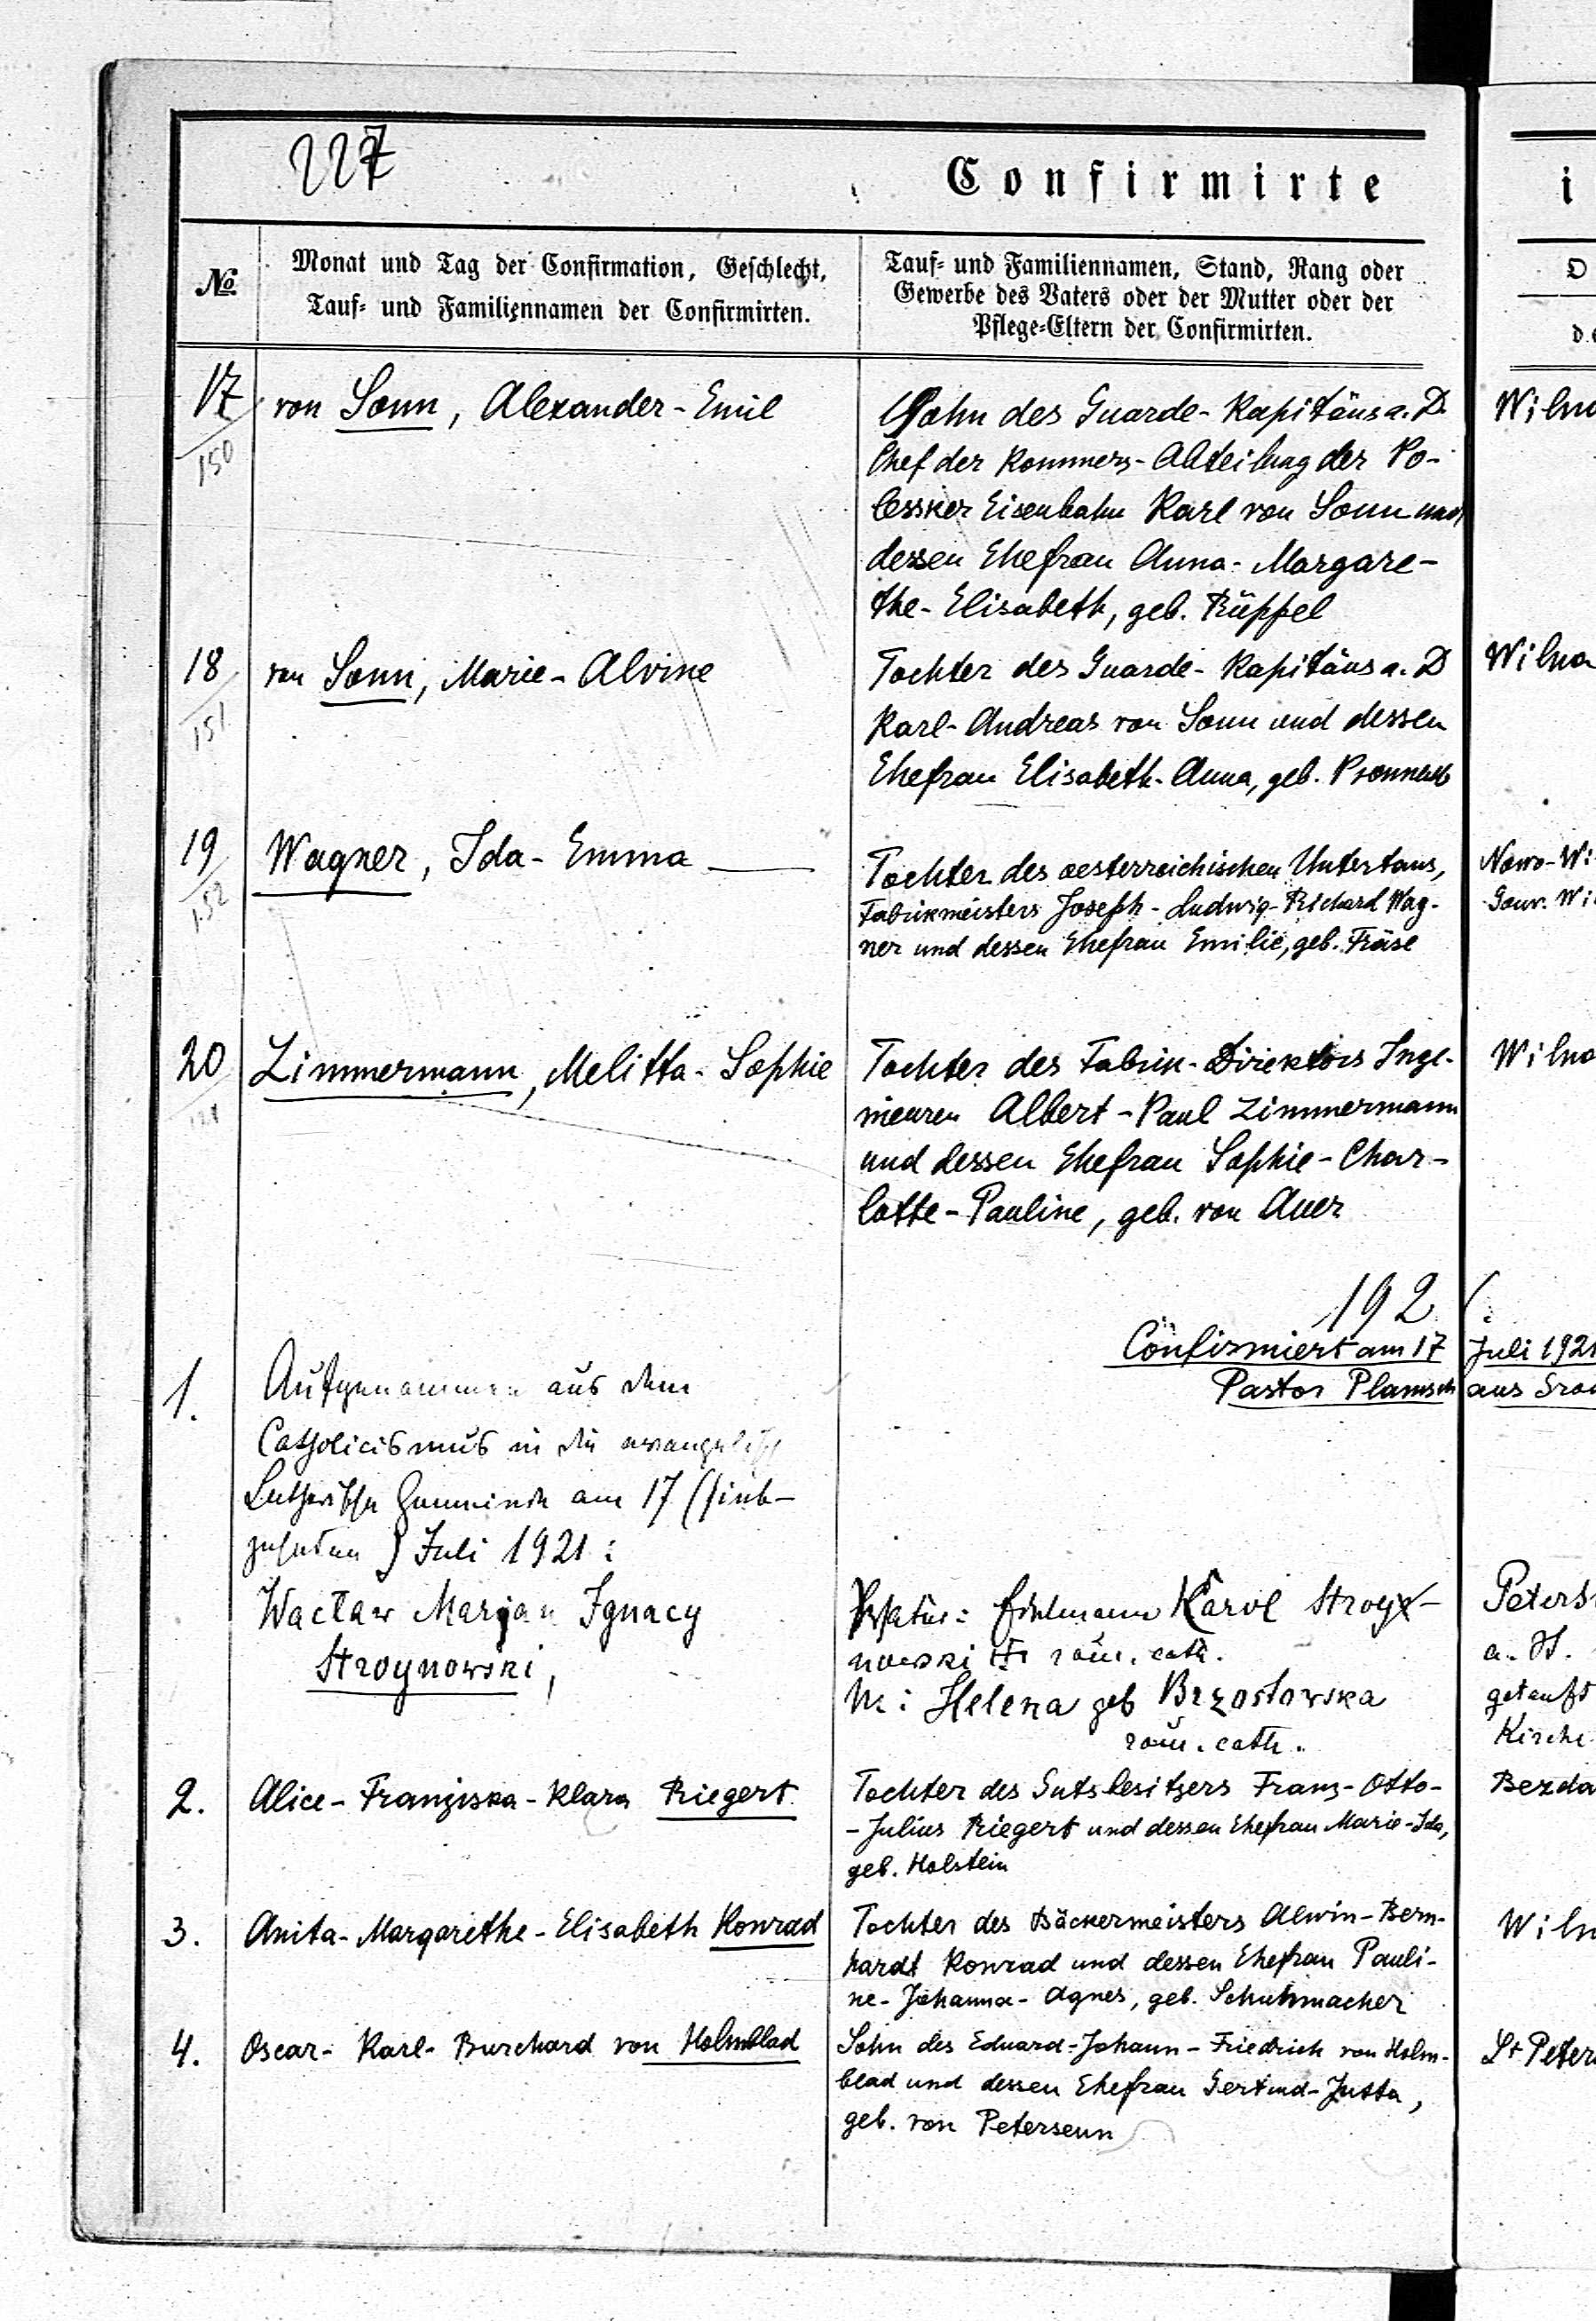 227
Confirmirte
i
№
Monat und Tag der Confirmation, Geschlecht,
Tauf= und Familiennamen der Confirmirten.
Tauf= und Familiennamen, Stand, Rang oder
Gewerbe des Vaters oder der Mutter oder der
Pflege=Eltern der Confirmirten.
O
d.
17
150
von Sonn, Alexander-Emil
Sohn des Guarde-Kapitäns a. D.
Chef der Kommerz-Abteilung der Po-
lessker Eisenbahn Karl von Sonn und
dessen Ehefrau Anna-Margare-
the-Elisabeth, geb. Rüppel
Wilna
18
151
von Sonn, Marie-Alvine
Tochter des Guarde-Kapitäns a. D
Karl-Andreas von Sonn und dessen
Ehefrau Elisabeth-Anna, geb.
Wilna
19
152
Wagner, Ida-Emma
Tochter des oesterreichischen Untertans,
Fabrikmeisters Joseph-Ludwig-Richard Wag-
ner und dessen Ehefrau Emilie, geb. Fräse
Nowo-Wi
Gouv. Wi
20
Zimmermann, Melitta-Sophie
Tochter des Fabrik-Direktors Inge-
nieuren Albert-Paul Zimmermann
und dessen Ehefrau Sophie-Char-
lotte-Pauline, geb. von Auer
Wilna
192
Confirmiert am 17 Juli 1921
Pastor Plamsch aus Grod
1.
Aufgenommen aus dem
Catholicismus in die evangelisch
Lutherische Gemeinde am 17 (sieb-
zehnten) Juli 1921:
Wacław Marjan Ignacy
Stroynowski,
Vater: Edelmann Karol Stroy-
nowski röm. cath.
M: Helena geb Brzostowska
röm. cath.
Peters
a. H.
getauft
Kirche
2.
Alice-Franziska-Klara Riegert
Tochter des Gutsbesitzers Franz-Otto-
-Julius Riegert und dessen Ehefrau Marie-Ida,
geb. Holstein
Bezda
3.
Anita-Margarethe-Elisabeth Konrad
Tochter des Bäckermeisters Alwin-Bern-
hardt Konrad und dessen Ehefrau Pauli-
ne-Johanna-Agnes, geb. Schuhmacher
Wiln
4.
Oscar-Karl-Burchard von Holmblad
Sohn des Eduard-Johann-Friedrich von Holm-
blad und dessen Ehefrau Gertrud-Jutta,
geb. von Petersenn
St Peter